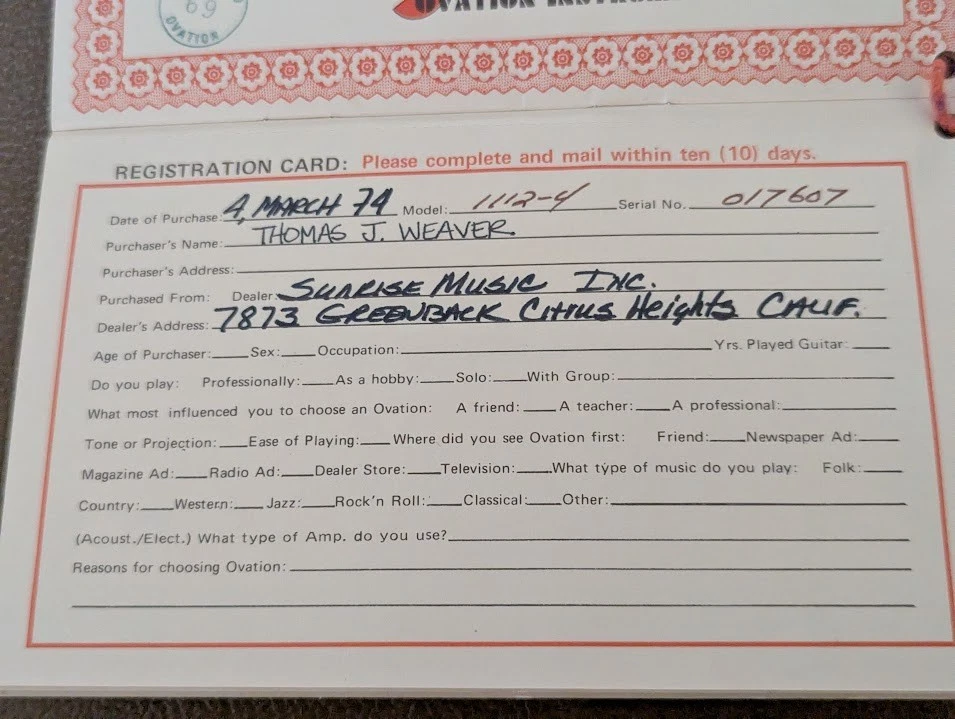 69
OVATION
OVATION INSTRUM
REGISTRATION CARD: Please complete and mail within ten (10) days.
Date of Purchase: 4, MARCH 74 Model: 1112-4 Serial No. 017607
Purchaser's Name: THOMAS J. WEAVER.
Purchaser's Address:
Purchased From: Dealer: SUNRISE MUSIC INC.
Dealer's Address: 7873 GREENBACK CITRUS HEIGHTS CALIF.
Age of Purchaser: Sex: Occupation: Yrs. Played Guitar:
Do you play: Professionally: As a hobby: Solo: With Group:
What most influenced you to choose an Ovation: A friend: A teacher: A professional:
Tone or Projection: Ease of Playing: Where did you see Ovation first: Friend: Newspaper Ad:
Magazine Ad: Radio Ad: Dealer Store: Television: What type of music do you play: Folk:
Country: Western: Jazz: Rock'n Roll: Classical: Other:
(Acoust./Elect.) What type of Amp. do you use?
Reasons for choosing Ovation: